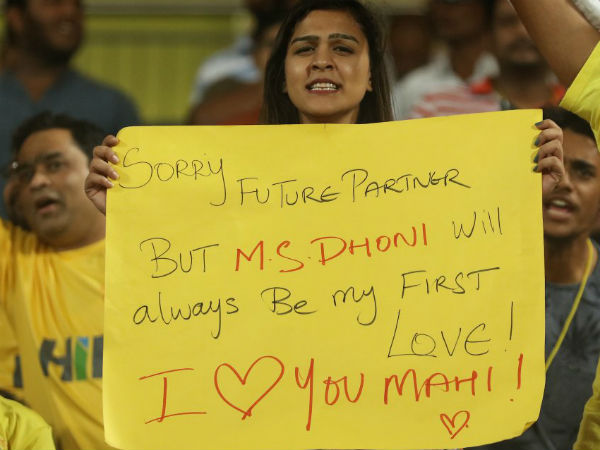 SORRY FUTURE PARTNER
BUT M.S.DHONI will
always Be my FIRST
LOVE!
I ♡ YOU MAHI!
♡